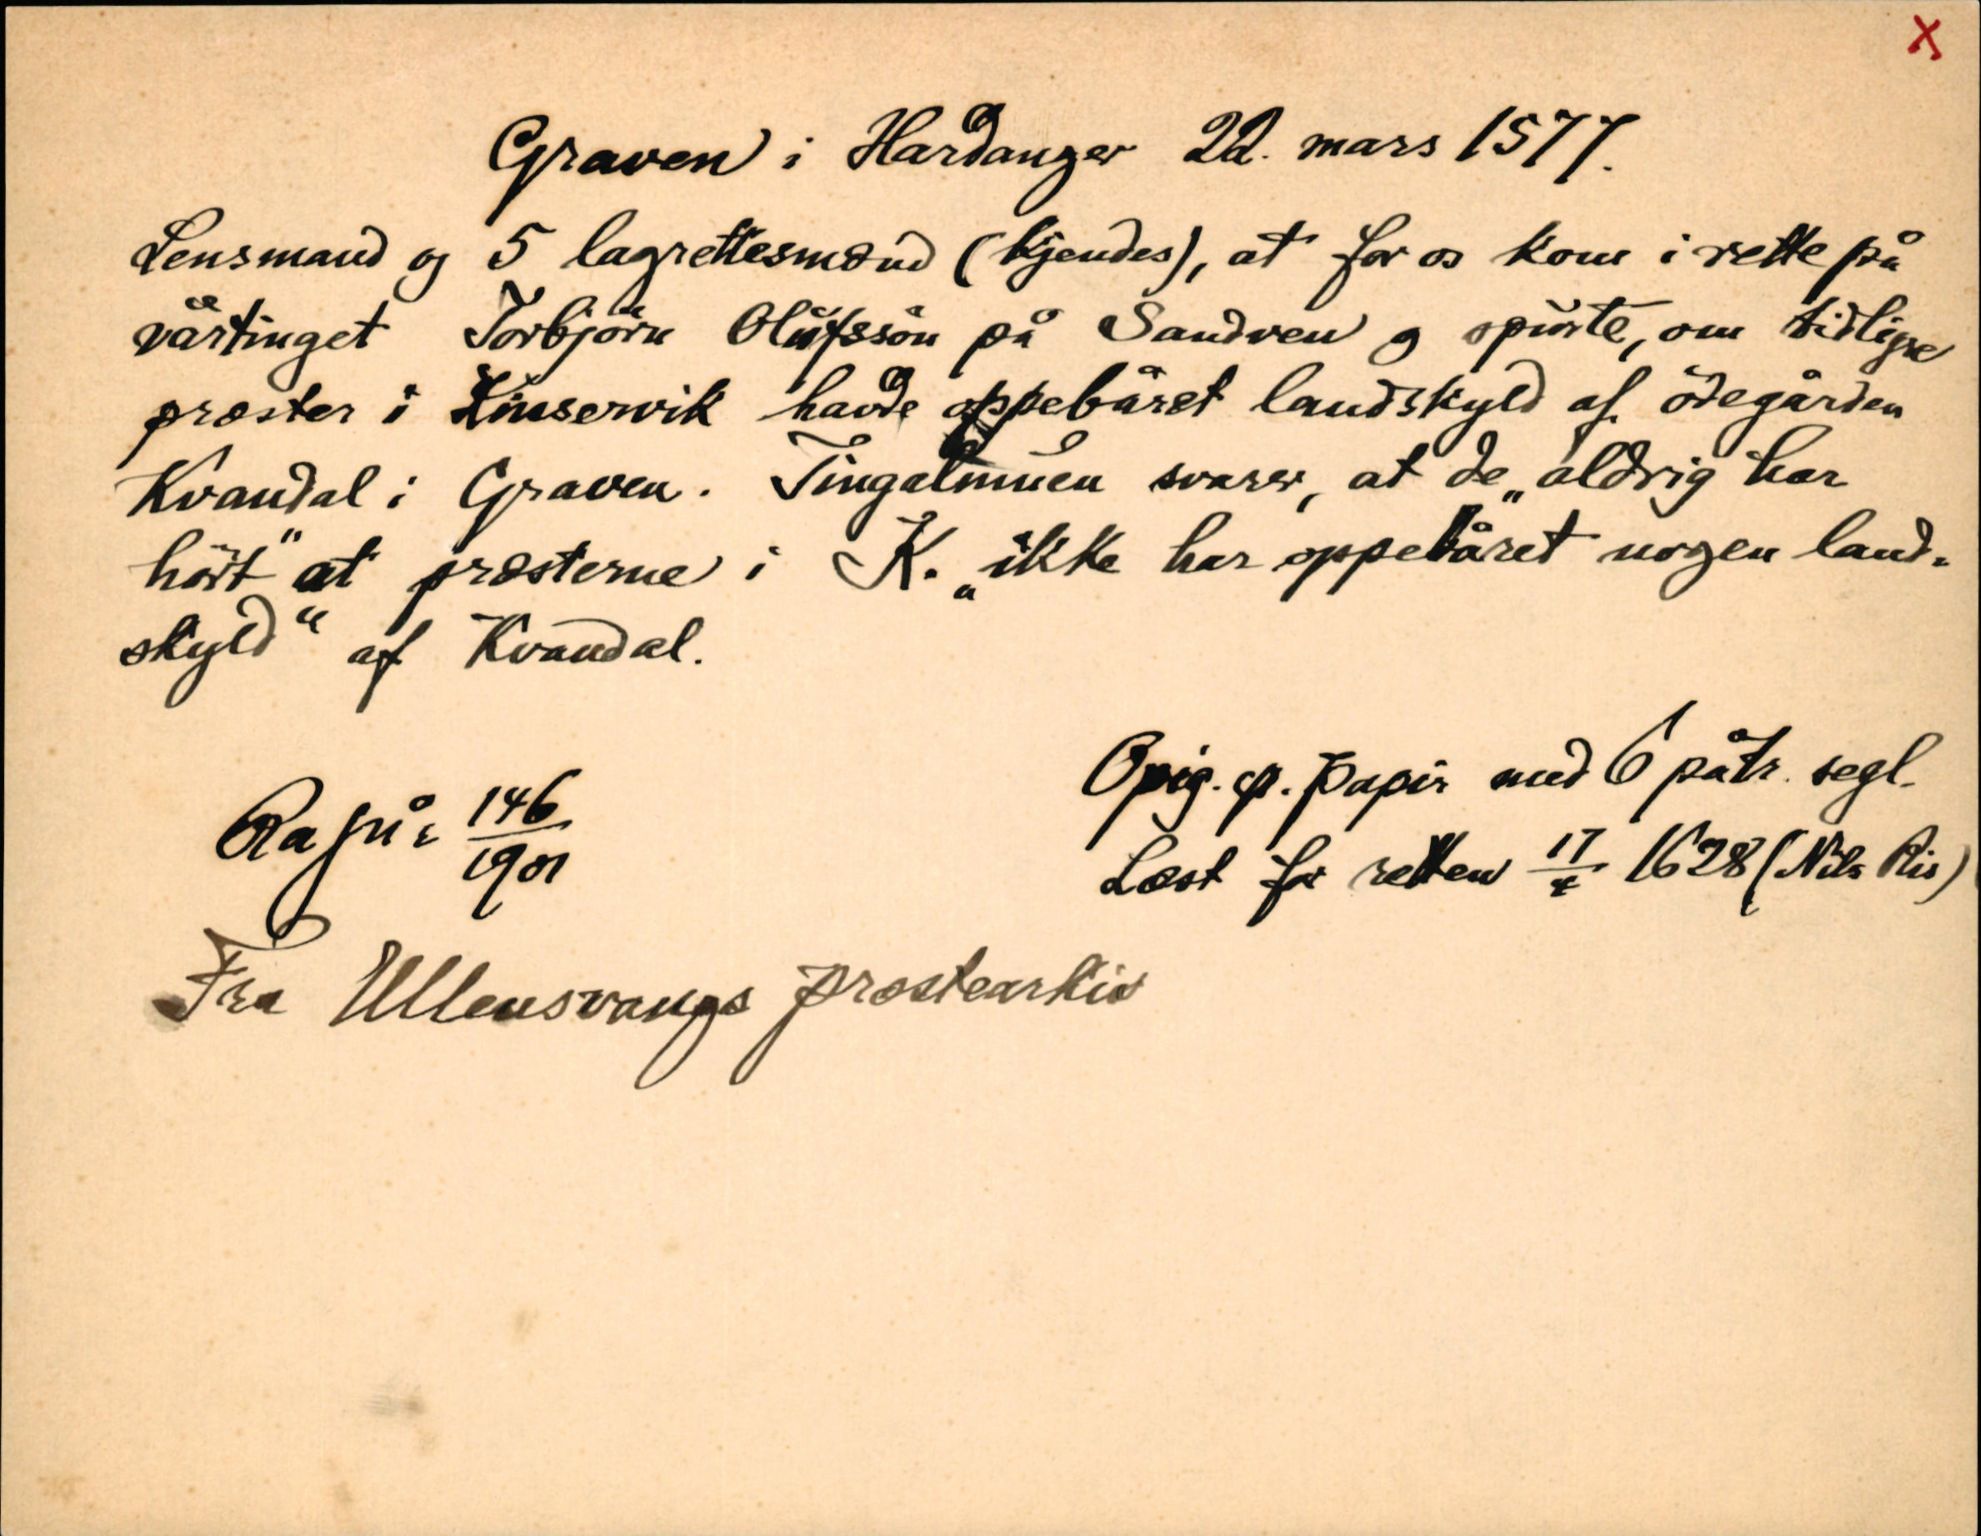 X
Graven i Hardanger 22. mars 1577.
Lensmand og 5 lagrettesmænd (kjendes), at for os kom i rette på
vårtinget Torbjörn Olufssön på Sandven og spurte, om tidligre
præster i Kinservik havde oppebåret landskyld af ödegården
Kvandal i Graven. Tingalmuen svarer, at de „aldrig har
hört" at præsterne i K. „ikke har oppebåret nogen land-
skyld" af Kvandal.
Orig. p. papir med 6 påtr. segl.
Ra jnr 146/1901
Læst for retten 17/4 1628 (Nils Ris)
Fra Ullensvangs prestearkiv